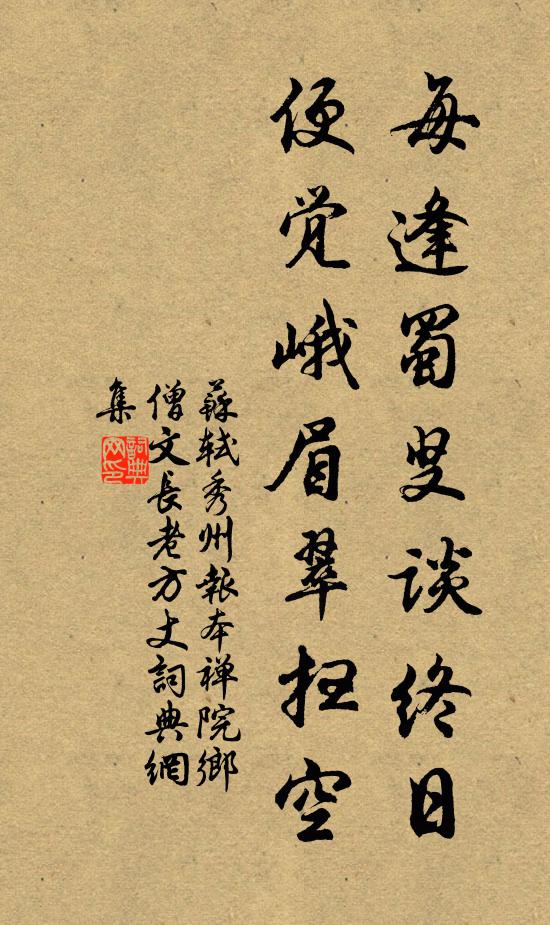 每逢蜀叟谈终日
便觉峨眉翠扫空
蘇軾秀州報本禅院鄉
僧文長老方丈詞典網
集
詞典網印